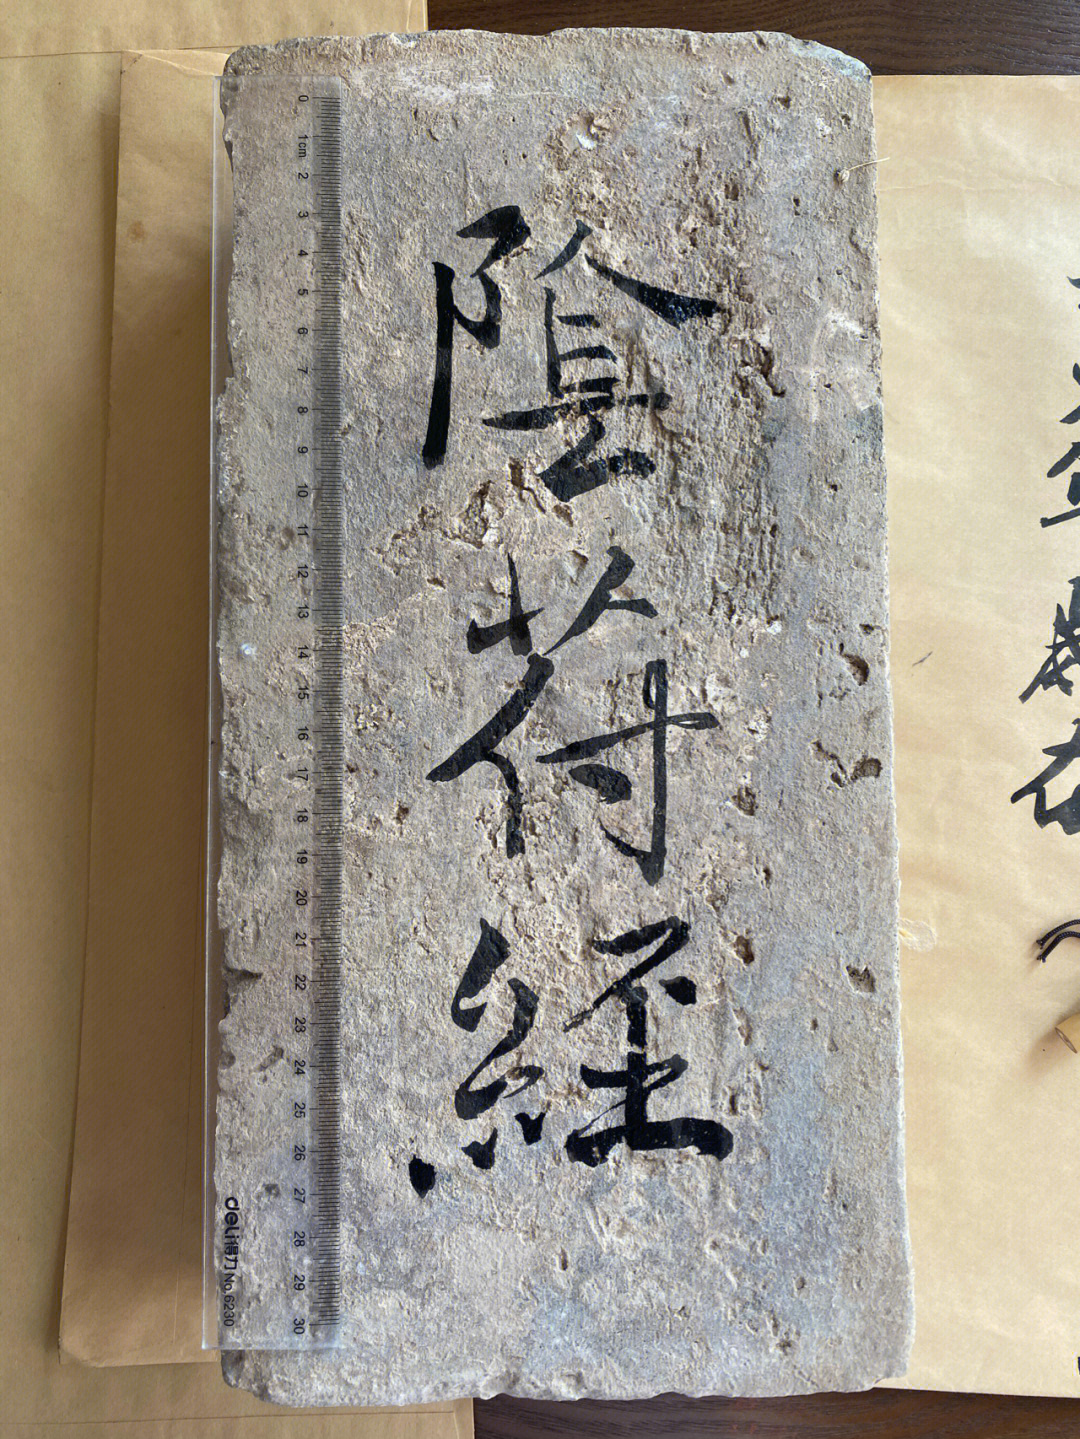 陰符経
0 1cm 2 3 4 5 6 7 8 9 10 11 12 13 14 15 16 17 18 19 20 21 22 23 24 25 26 27 28 29 30
deli得力 No.6230